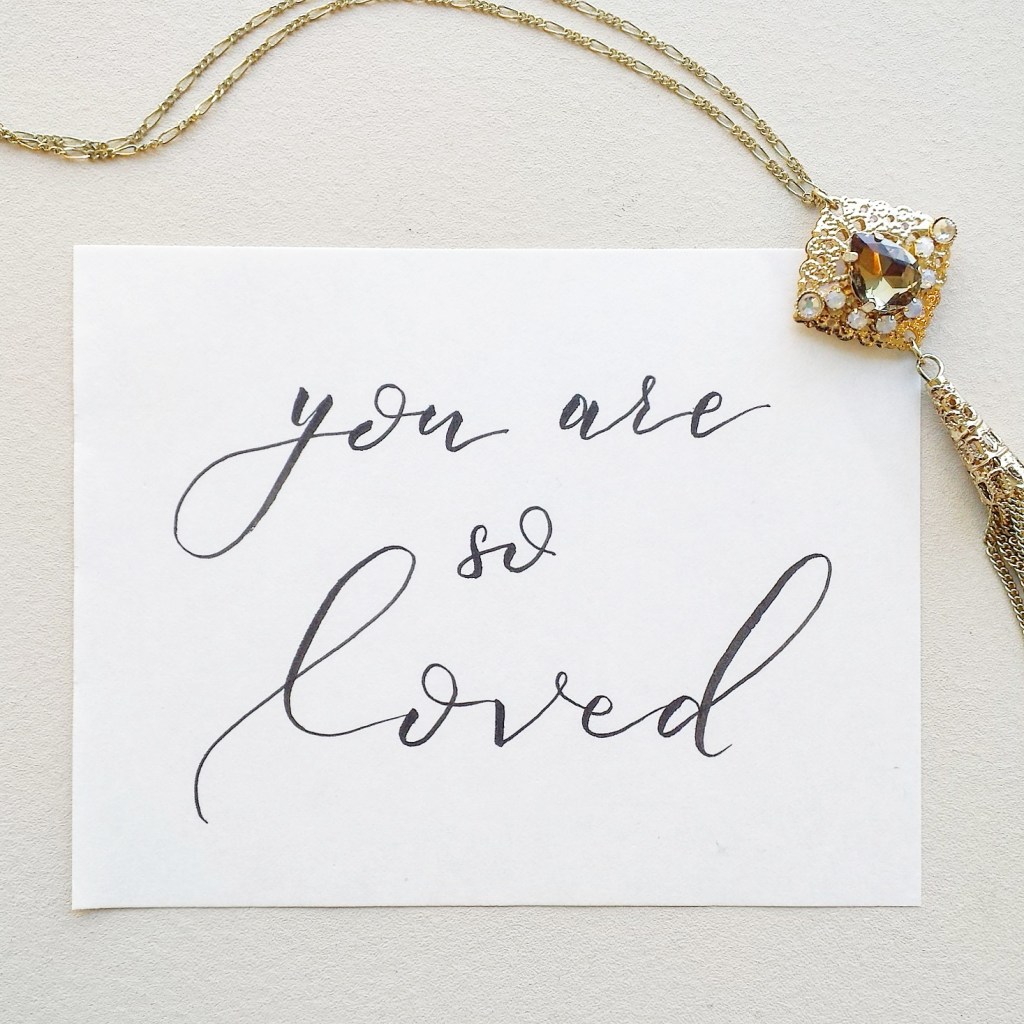 you are
so
loved